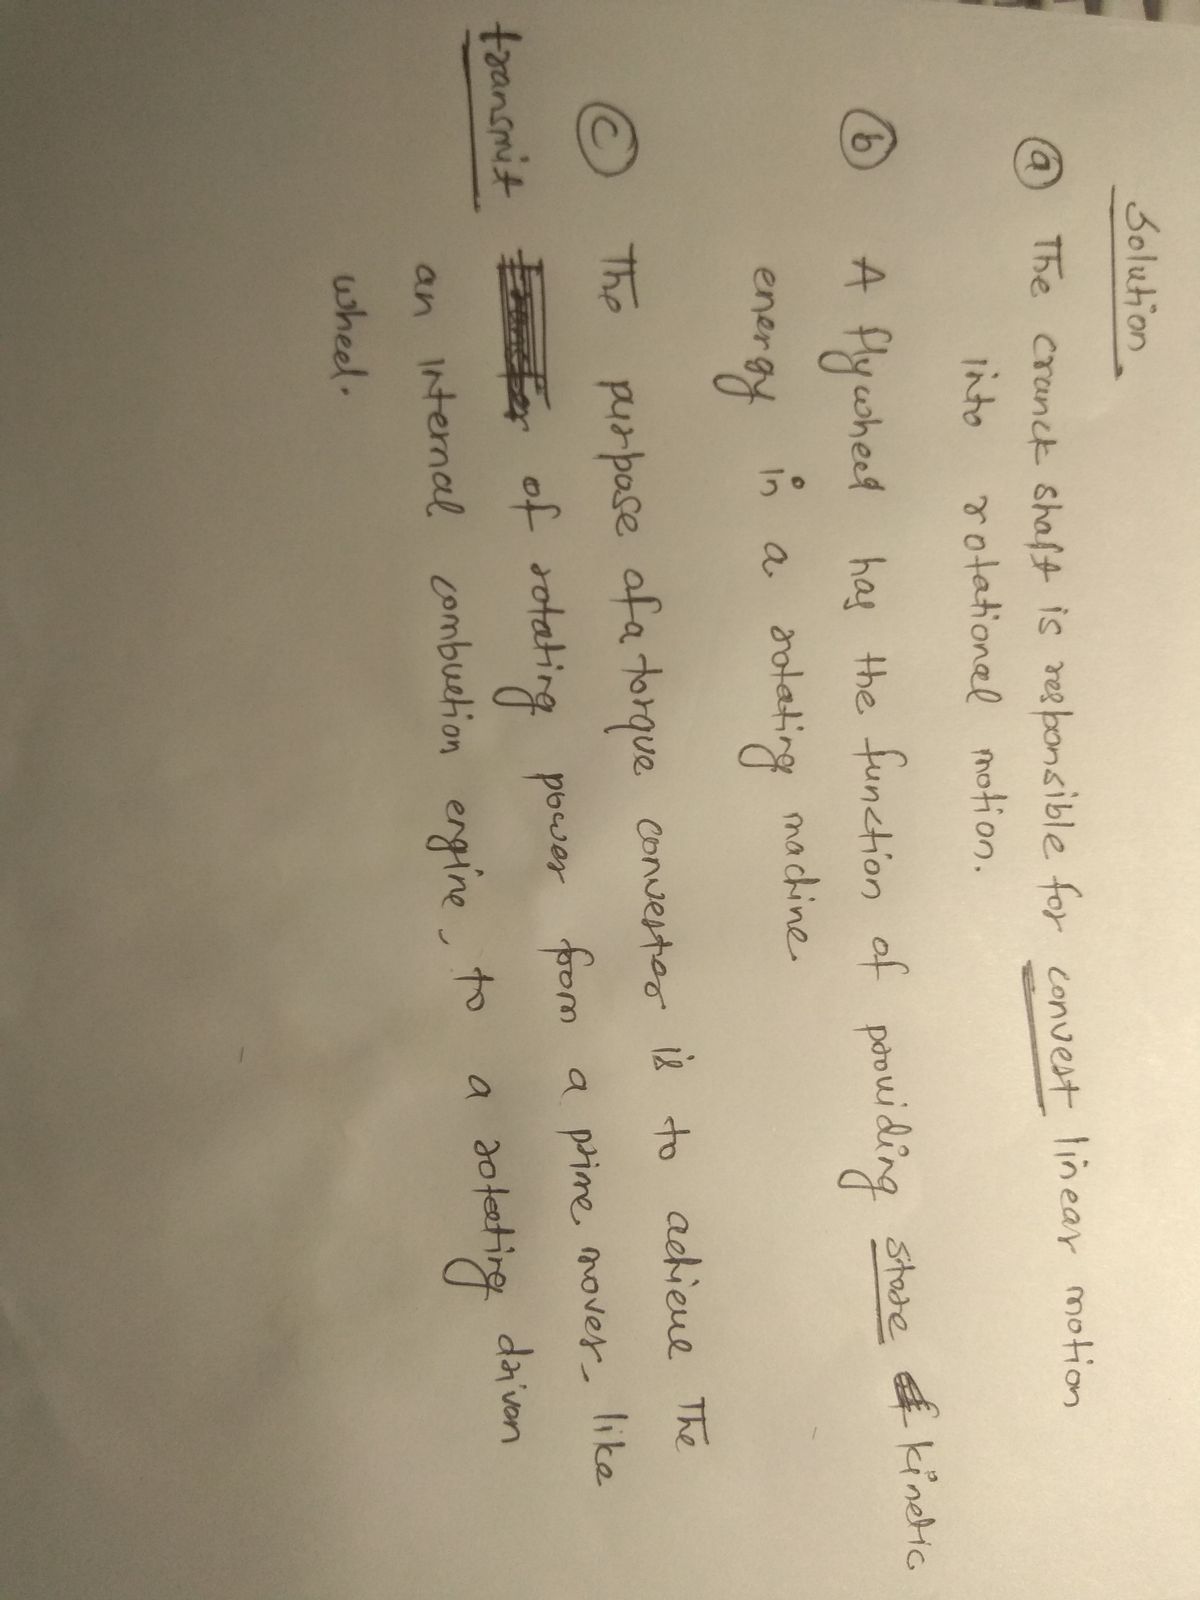 Solution
(a) The cranck shaft is responsible for convert linear motion
into rotational motion.
(b) A flywheel has the function of providing store kinetic
energy in a rotating machine
(c) The purpose of a torque converter is to achieve The
transmit of rotating power from a prime mover- like
an internal combustion engine, to a rotating driven
wheel.